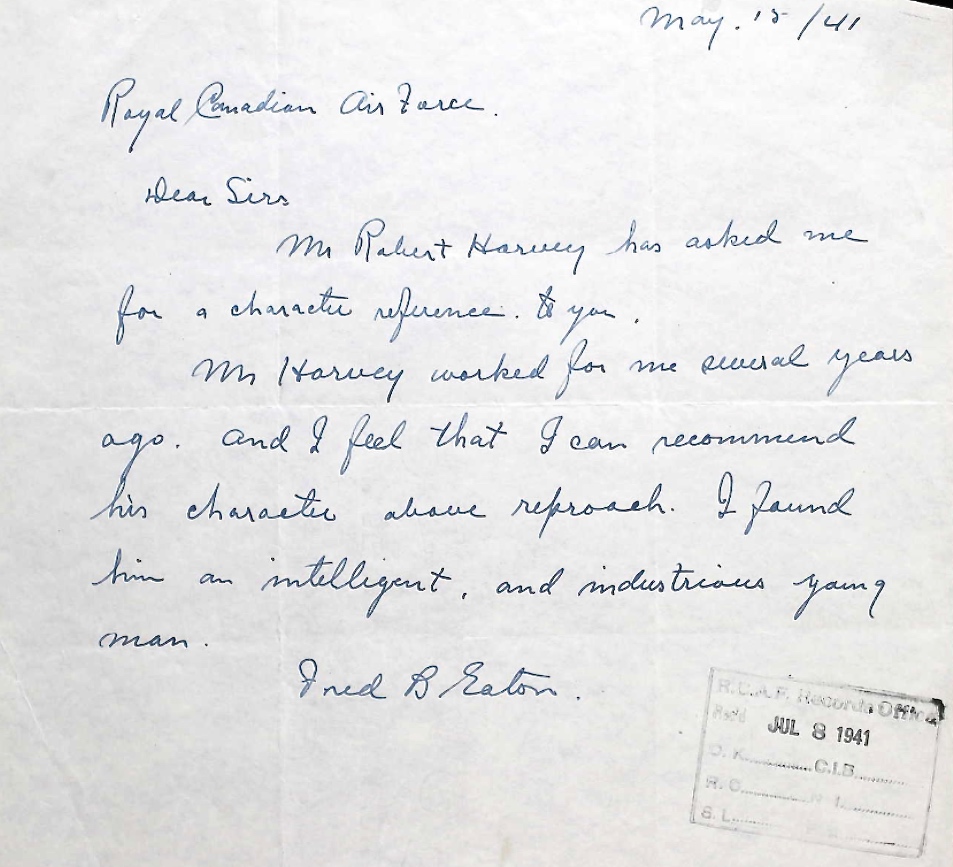 May. 15/41
Royal Canadian Air Force.
Dear Sirs
Mr Robert Harvey has asked me
for a character reference. to you.
Mr Harvey worked for me several years
ago. and I feel that I can recommend
his character above reproach. I found
him an intelligent, and industrious young
man.
Fred B Eaton.
R.C.A.F. Records Office
Rec'd JUL 8 1941
C.I.B.
R.C.
S.L.